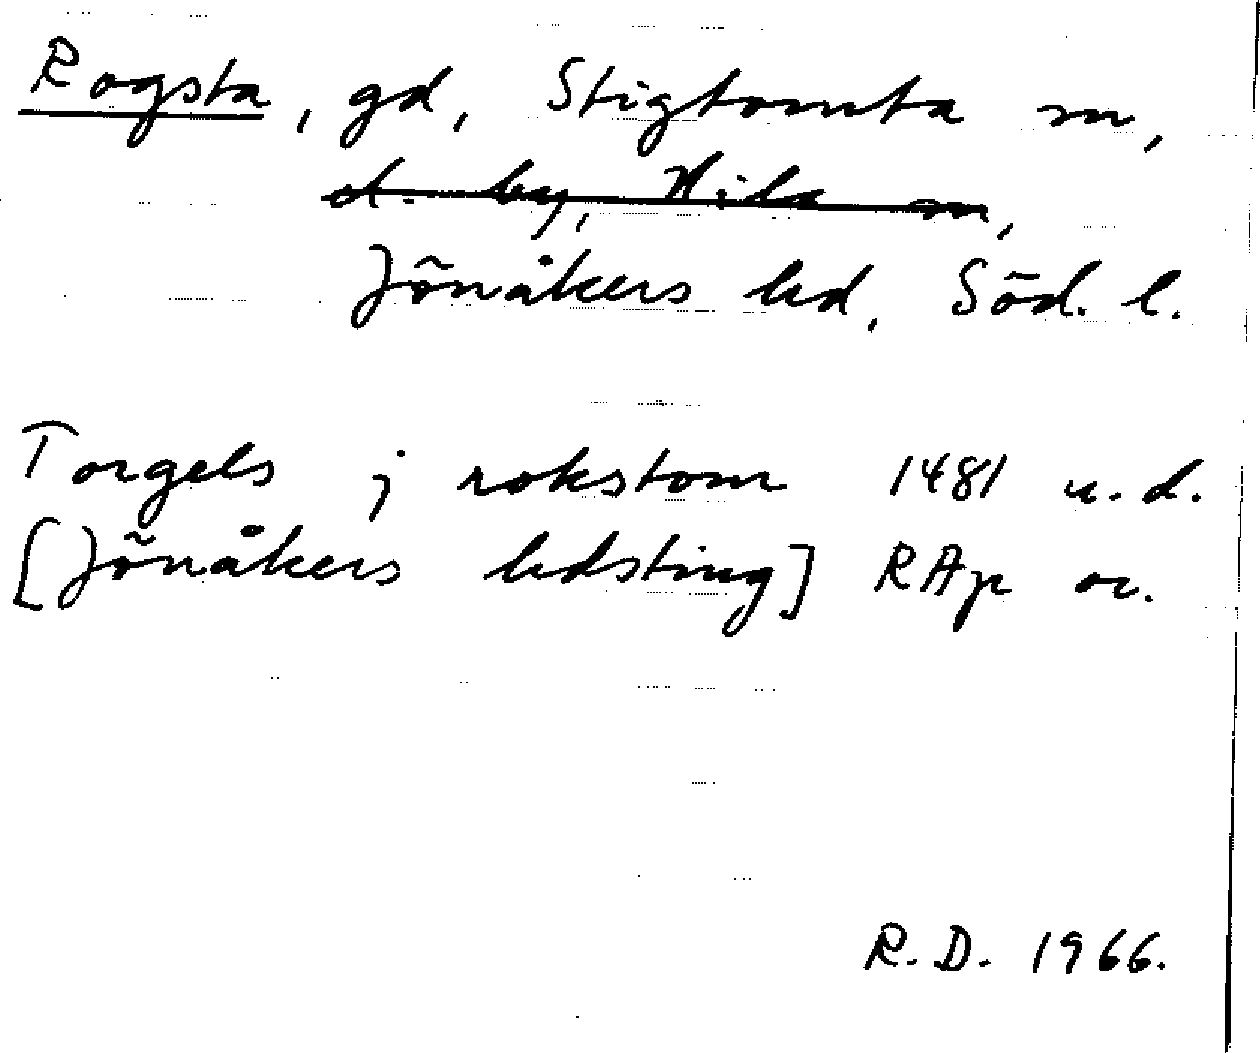 Rogsta, gd, Stigtomta sn,
d. by, Nila sn,
Jönåkers hd, Söd. l.
Torgels j rokstom 1481 u.d.
[Jönåkers hdsting] RAp or.
R.D. 1966.